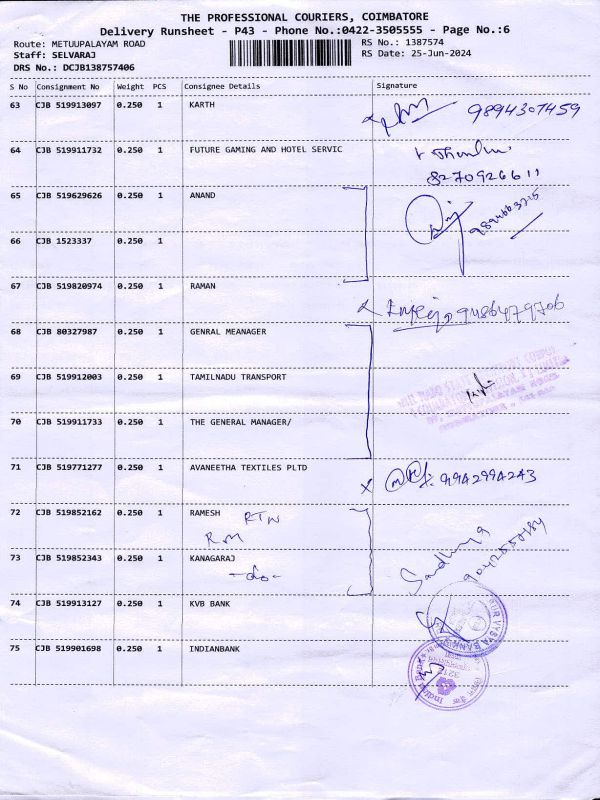 THE PROFESSIONAL COURIERS, COIMBATORE
Delivery Runsheet - P43 - Phone No.:0422-3505555 - Page No.:6
Route: METUUPALAYAM ROAD
RS No.: 1387574
Staff: SELVARAJ
RS Date: 25-Jun-2024
DRS No.: DCJB138757406
S No Consignment No Weight PCS Consignee Details Signature
63 CJB 519913097 0.250 1 KARTH 9894307459
64 CJB 519911732 0.250 1 FUTURE GAMING AND HOTEL SERVIC
8270926611
65 CJB 519629626 0.250 1 ANAND
66 CJB 1523337 0.250 1
67 CJB 519820974 0.250 1 RAMAN
9486479706
68 CJB 80327987 0.250 1 GENRAL MEANAGER
69 CJB 519912003 0.250 1 TAMILNADU TRANSPORT
70 CJB 519911733 0.250 1 THE GENERAL MANAGER/
71 CJB 519771277 0.250 1 AVANEETHA TEXTILES PLTD
9942994243
72 CJB 519852162 0.250 1 RAMESH RTN
RM
73 CJB 519852343 0.250 1 KANAGARAJ
-do-
Sandhya
74 CJB 519913127 0.250 1 KVB BANK
75 CJB 519901698 0.250 1 INDIANBANK